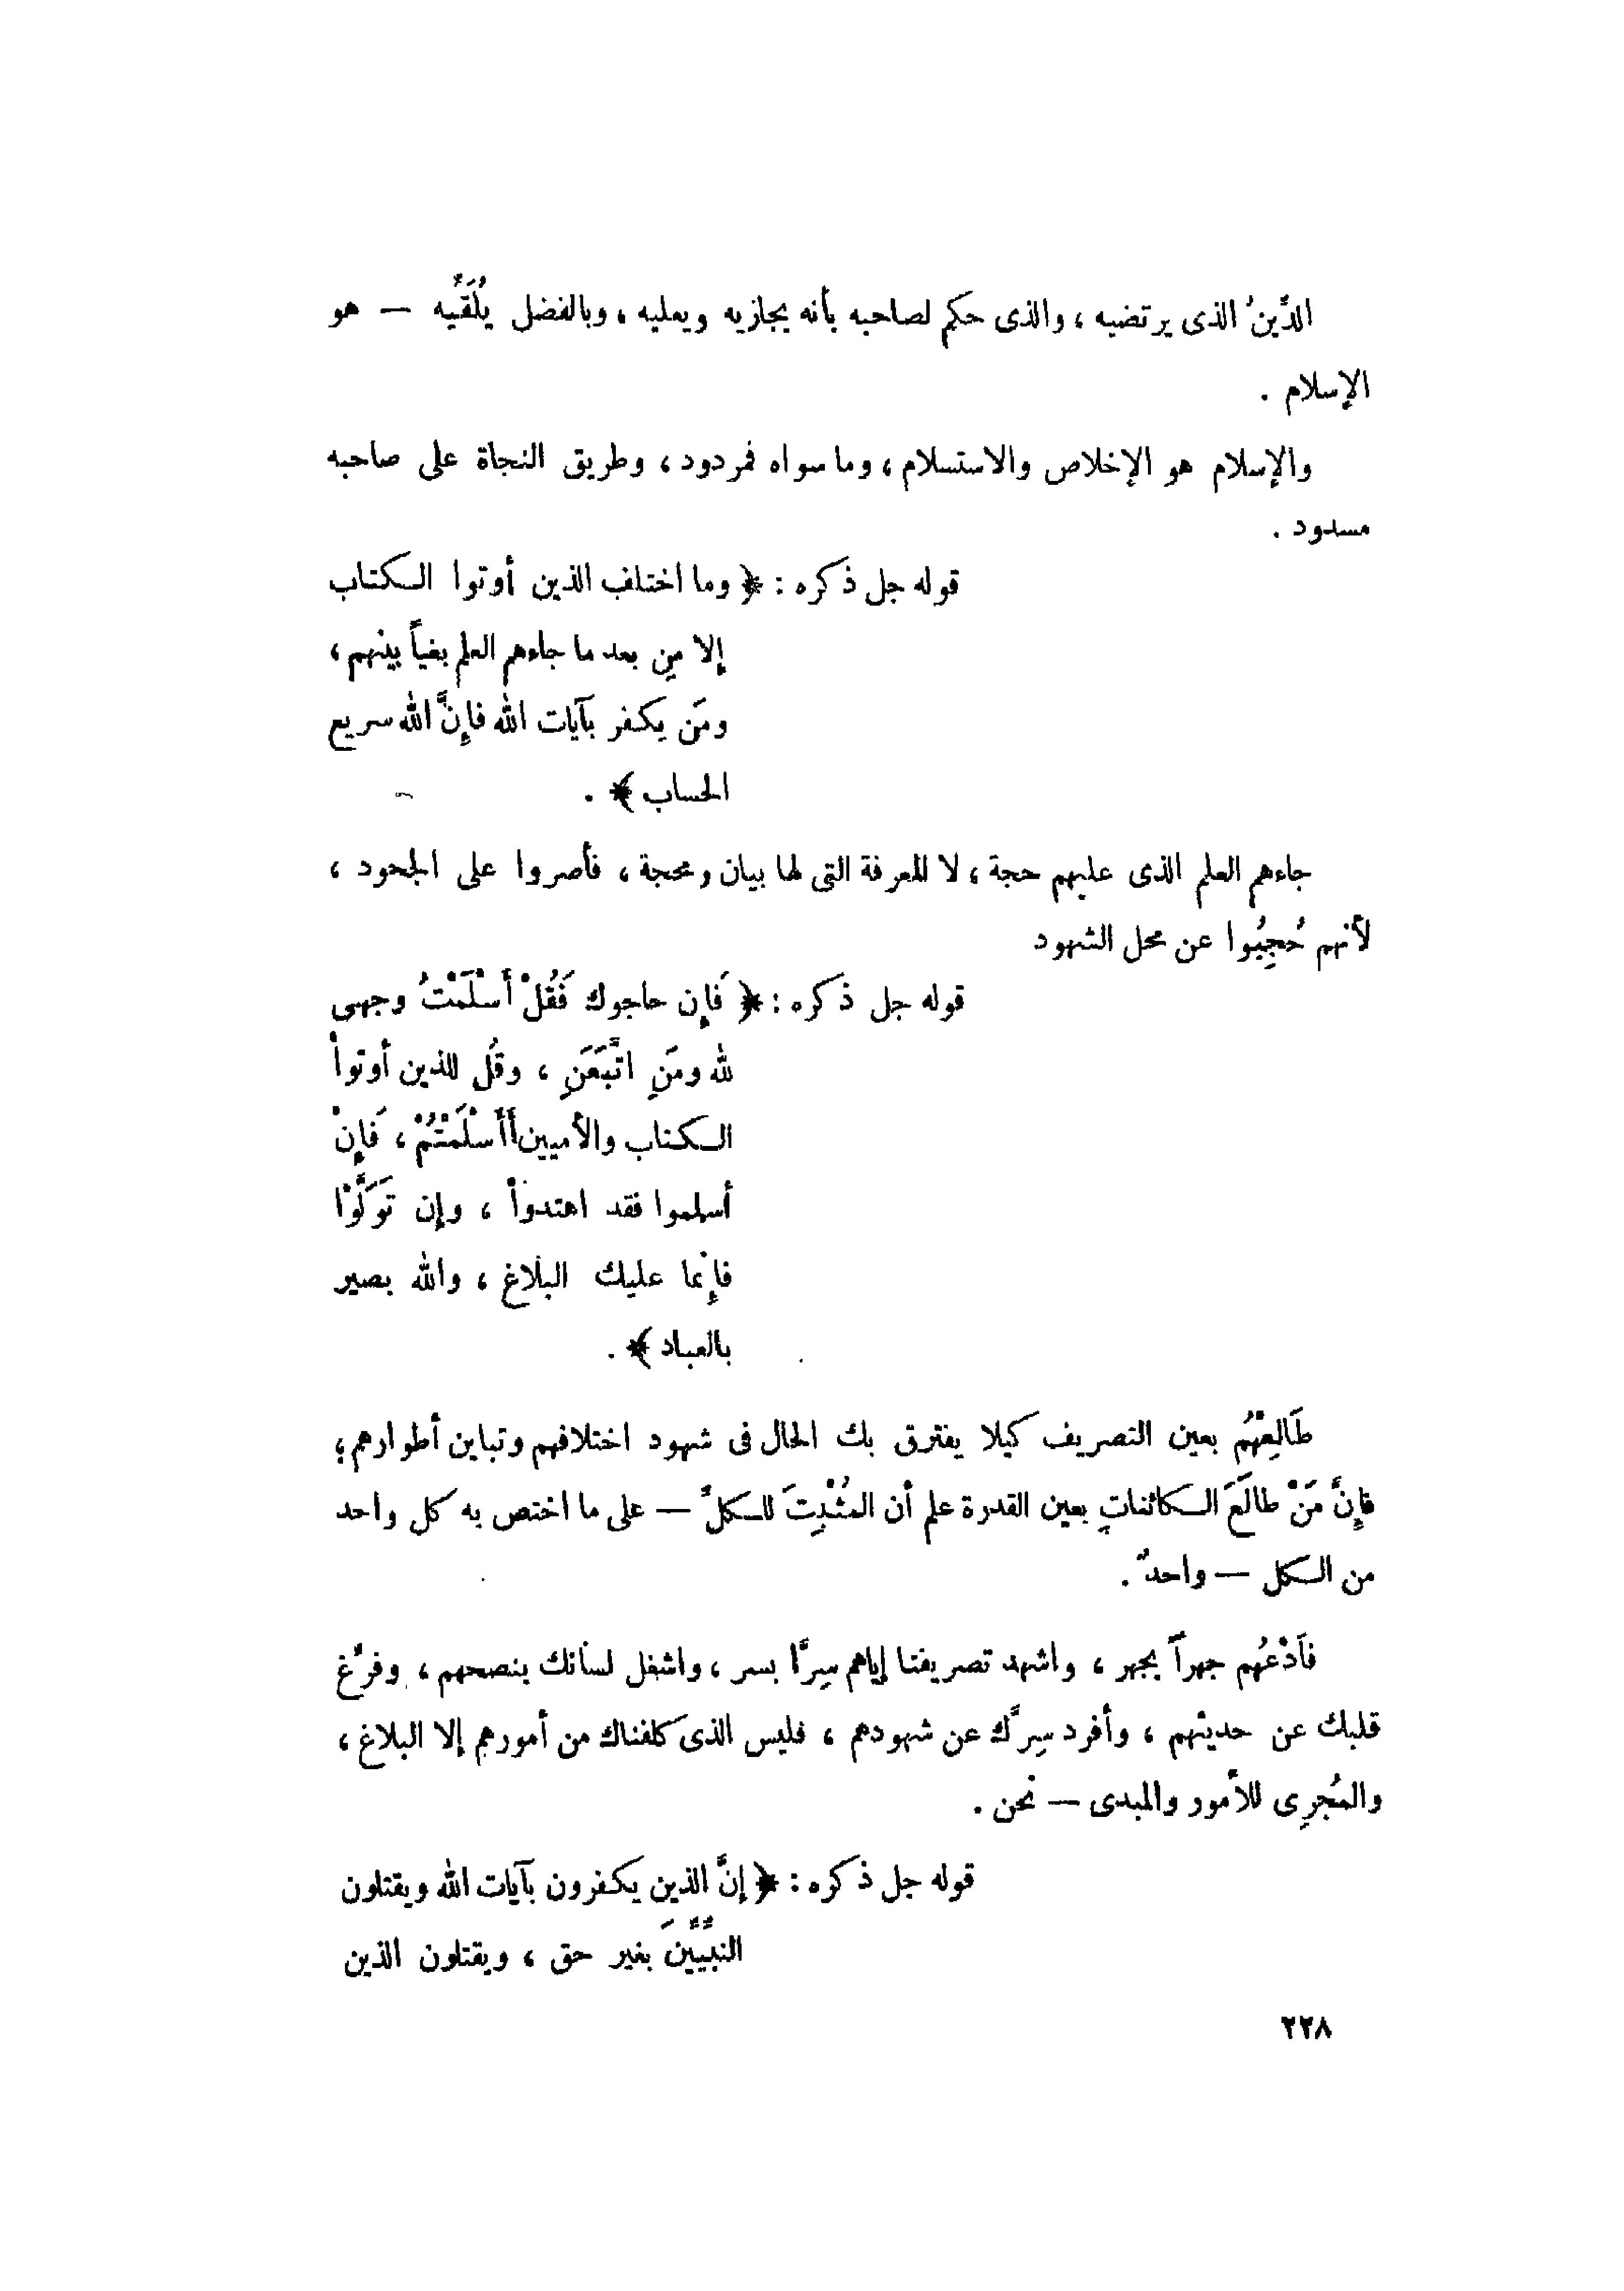 الدِّينُ الذى يرتضيه ، والذى حكم لصاحبه بأنه يجازيه ويعليه ، وبالفضل يُلَقِّيه — هو
الإسلام .
والإسلام هو الإخلاص والاستسلام ، وما سواه فمردود ، وطريق النجاة على صاحبه
مسدود .
قوله جل ذكره : ﴿ وما اختلف الذين أوتوا الكتاب
إلا مِن بعد ما جاءهم العلم بغياً بينهم ،
ومَن يكفر بآيات الله فإِنَّ الله سريع
الحساب ﴾ .
جاءهم العلم الذى عليهم حجة ، لا المعرفة التى لها بيان ومحجة ، فأصروا على الجحود ،
لأنهم حُجِبُوا عن محل الشهود
قوله جل ذكره : ﴿ فَإِن حاجوك فَقُلْ أَسْلَمْتُ وجهى
لله ومَنِ اتَّبَعَنِ ، وقُل للذين أوتواْ
الكتاب والأميين أَأَسْلَمْتُمْ ، فَإِنْ
أسلموا فقد اهتدواْ ، وإن تَوَلَّوْا
فإنما عليك البلاغ ، والله بصير
بالعباد ﴾ .
طَالِعْهُم بعين التصريف كيلا يفترق بك الحال فى شهود اختلافهم وتباين أطوارهم ؛
فإِنَّ مَنْ طالَعَ الكائناتِ بعين القدرة علم أن المُثْبِتَ للكلِّ — على ما اختص به كل واحد
من الكل — واحدٌ .
فاَدْعُهم جهراً بجهر ، واشهد تصريفنا إياهم سِرَّاً بسر ، واشغل لسانك بنصحهم ، وفرِّغ
قلبك عن حديثهم ، وأفرد سِرَّك عن شهودهم ، فليس الذى كلفناك من أمورهم إلا البلاغ ،
والمُجرِى للأمور والمبدى — نحن .
قوله جل ذكره : ﴿ إنَّ الذين يكفرون بآيات الله ويقتلون
النبيِّينَ بغير حق ، ويقتلون الذين
٢٢٨